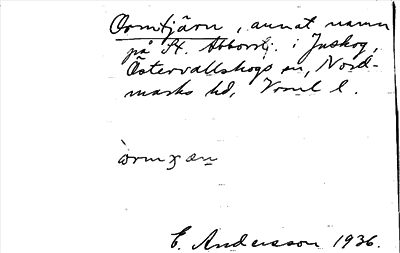 Ormtjärn, annat namn
på St. Abborrtj. i Juskog,
Östervallskogs sn, Nord-
marks hd, Vrml l.
E. Andersson 1936.